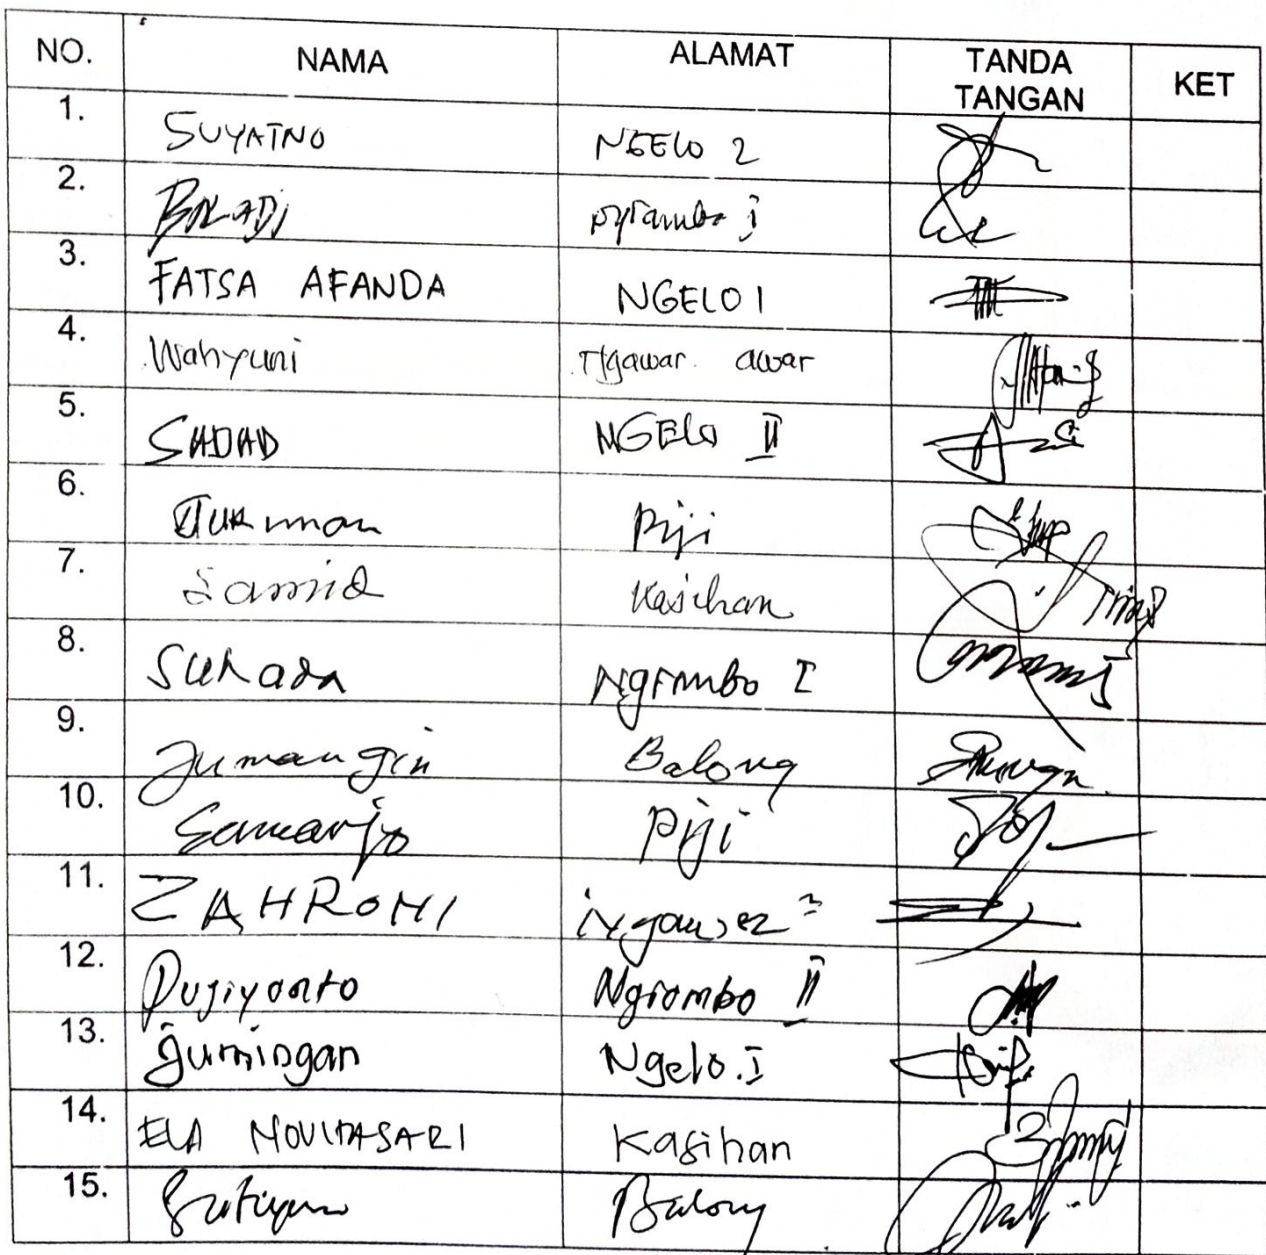 NO. NAMA ALAMAT TANDA TANGAN KET
1. SUYATNO NGELO 2
2. I
3. FATSA AFANDA NGELO I
4. Wahyuni Ngawar awar
5. SADAD NGELO II
6. Piji
7. Samid Kasihan
8. Suhada Ngrombo I
9. Jumangin Balong
10. Samarjo Piji
11. ZAHROMI
12. Pujiyanto Ngrombo II
13. Jumingan Ngelo.I
14. ELA NOVITASARI Kasihan
15. Balong